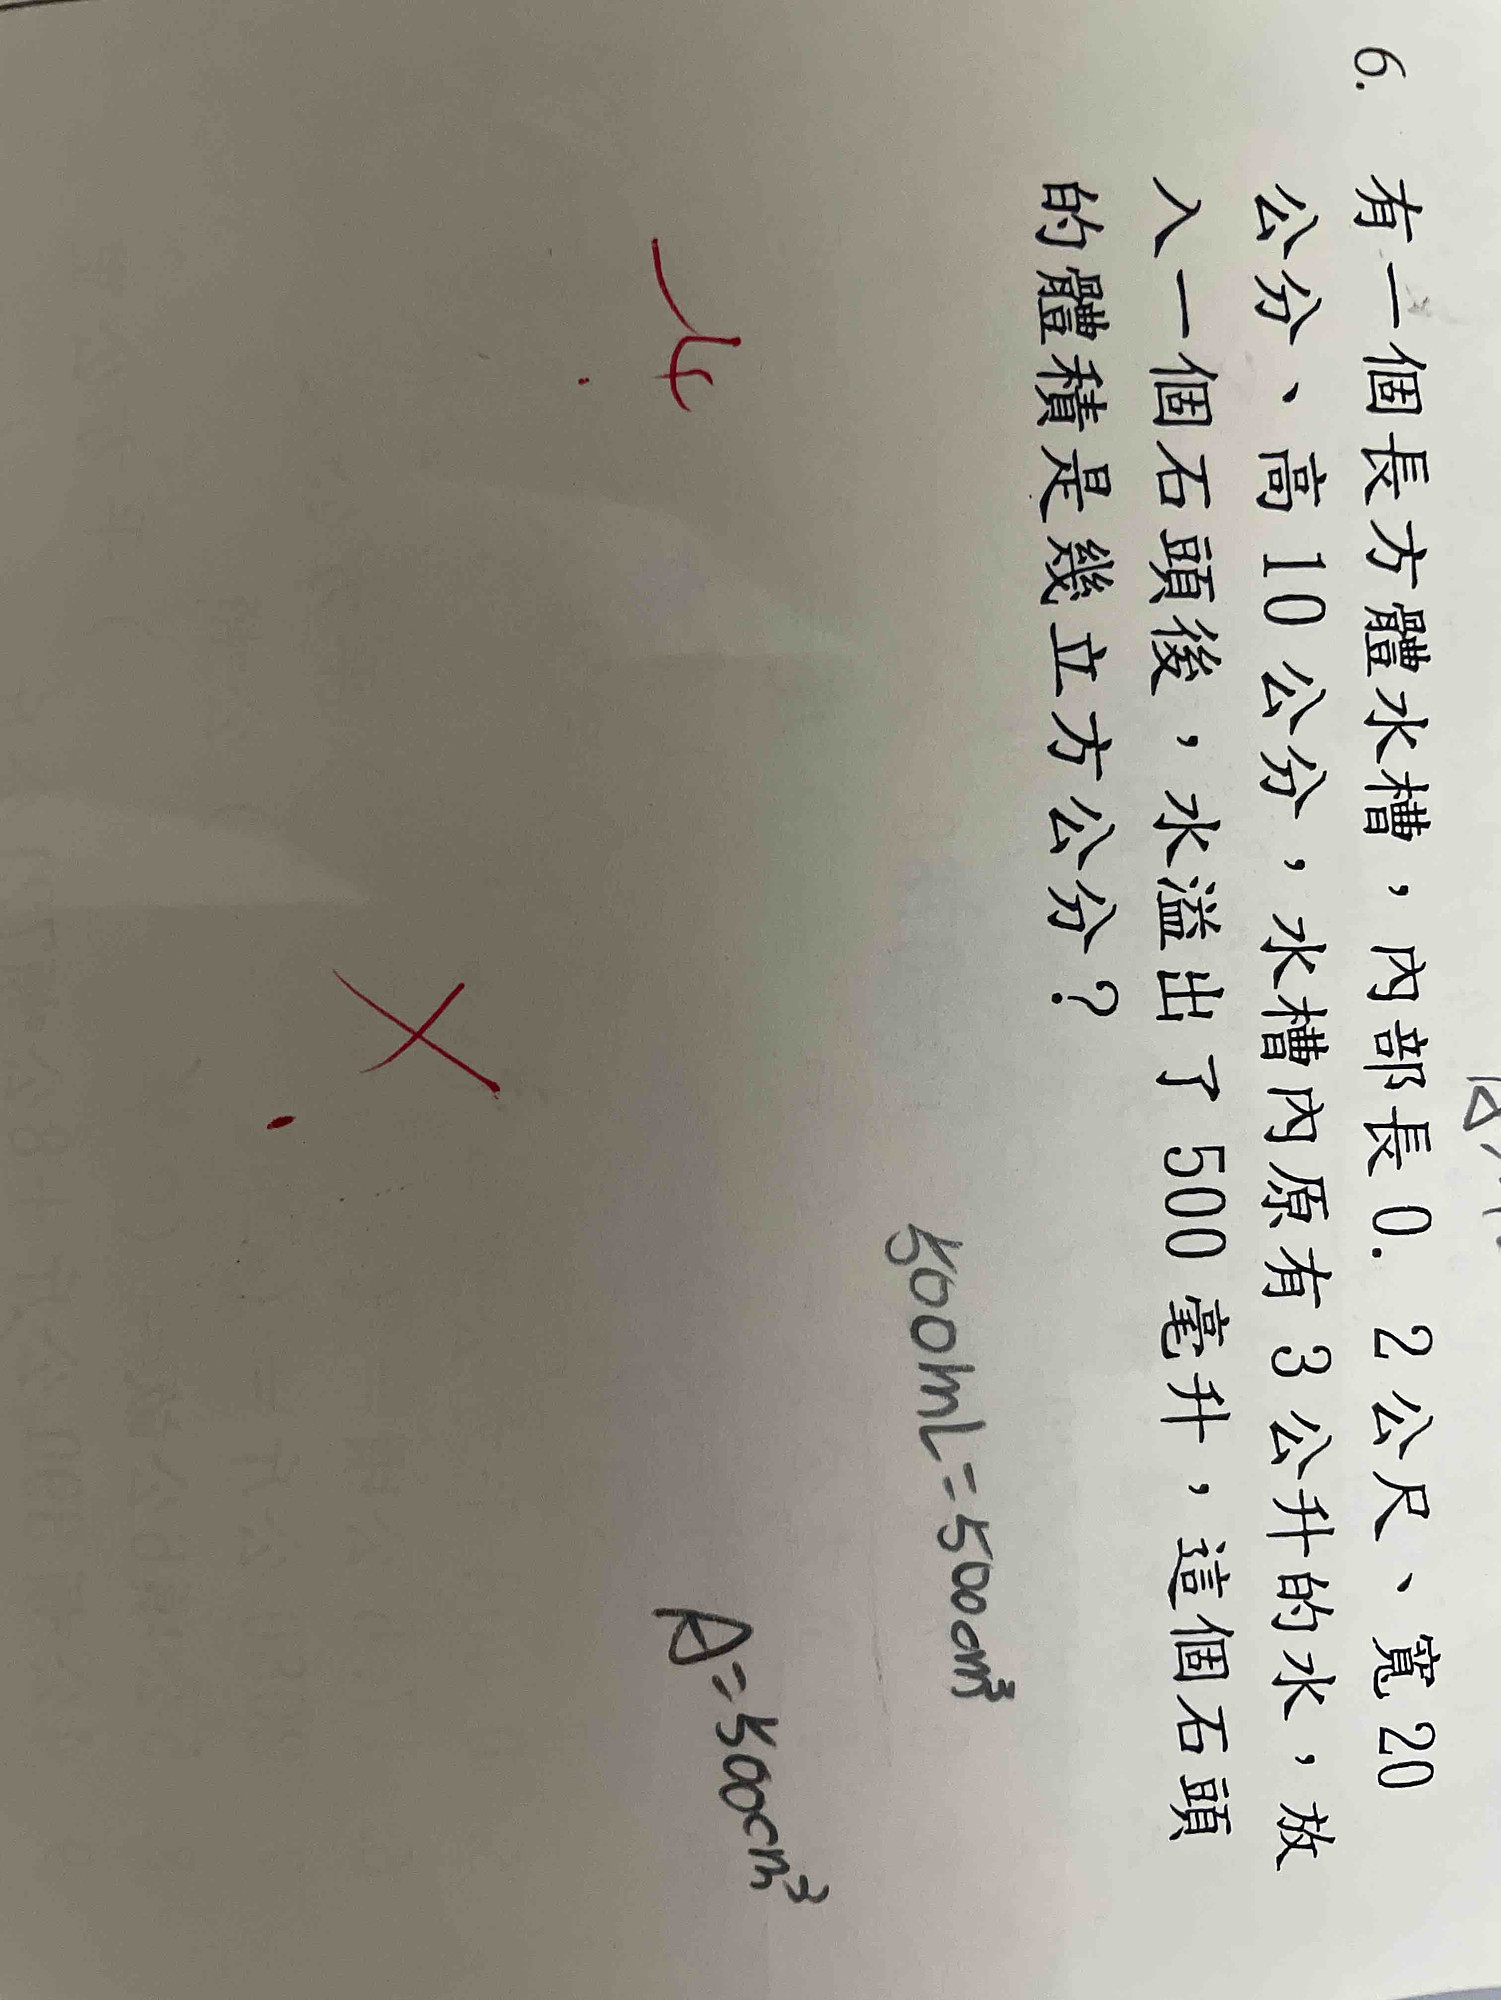 6. 有一個長方體水槽，內部長0.2公尺、寬20
公分、高10公分，水槽內原有3公升的水，放
入一個石頭後，水溢出了500毫升，這個石頭
的體積是幾立方公分？
500mL=500cm³
A=500cm³
-4